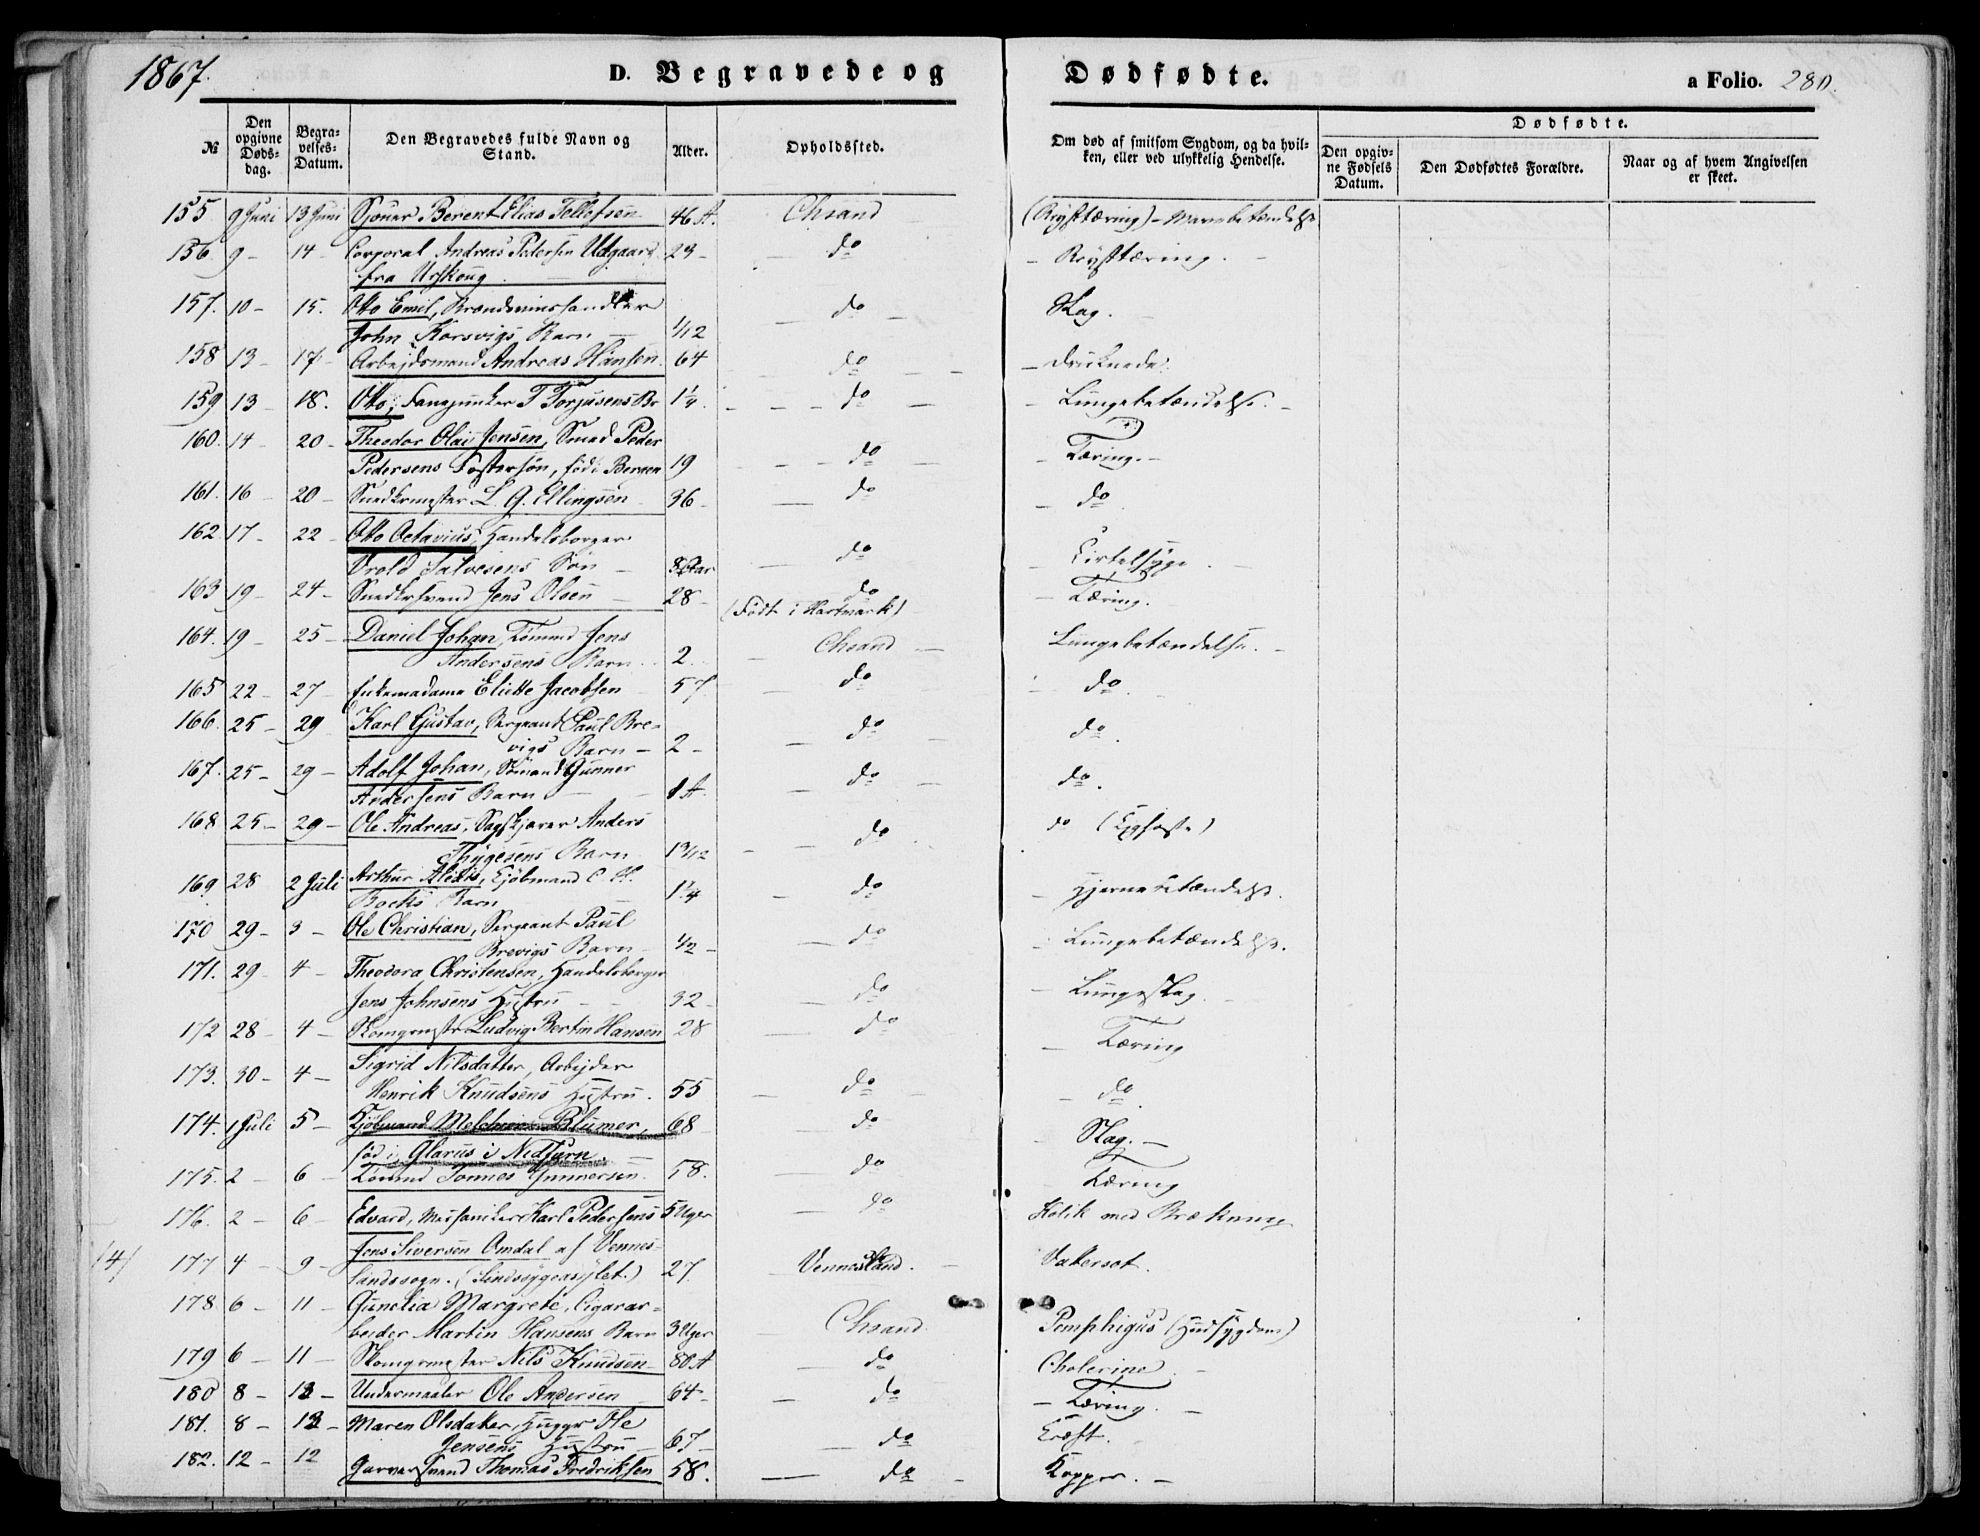 1867.
D. Begravede og Dødfødte. a Folio. 280.
№ Den opgivne Døds-dag. Begra-velses-Datum. Den Begravedes fulde Navn og Stand. Alder. Opholdssted. Om død af smitsom Sygdom, og da hvil-ken, eller ved ulykkelig Hendelse. Dødfødte.
Den opgiv-ne Fødsels Datum. Den Dødfødtes Forældre. Naar og af hvem Angivelsen er skeet.
155. 9 Juni 13 Juni Berent Elias Tellefsen 46 A. Chsand (Brysttæring) - Mavebetændelse
156. 9 - 14 - Corporal Andreas Pedersen Udgaard 23 - do - Brysttæring. -
fra Urskoug
157. 10 - 15. Otto Emil, Brændeviinshandler do Slag.
John Korsvigs Barn 1/12
158 13 - 17 - Arbejdsmand Andreas Hansen 64 do - druknede.
159 13 - 18. Otto, Fanejunker T Torjusens Br 1 1/4. do - Lungebetændelse. -
160. 14 - 20 - Theodor Olai Jensen, Smed Peder
Pedersens Fostersøn, fød i Bergen 19 do - Tæring. -
161. 16 - 20 - Snedkrmester L. G. Ellingsen 36 - do - do
162. 17 - 22 - Otto Octavius, Handelsborger
Salvesens Søn - 8 Aar do - Kirtelsyge.
163 19 - 24 - Snedkrsvend Jens Olsen 28 - do - Tæring.
(Født i Hartmark)
164. 19 - 25 - Daniel Johan, Tømmd Jens Chsand Lungebetændelse. -
Andersens Barn 2.
165 22 - 27 - Enkemadame Elisette Jacobsen 57 do do
166. 25 - 29 Karl Gustav, Sergeand Paul Bre- do do.
vigs Barn - 2 -
167. 25 - 29 - Adolf Johan, Sømand Gunner do do.
Andersens Barn 1 A.
168 25 - 29 - Ole Andreas, Sagskjærer Anders do do
Thygesens Barn
169. 28 2 Juli Arthur Alexis, Kjøbmand C. - Hjernebetændelse.
Bochs Barn 1 1/4 do
170 29 - 3 - Ole Christian, Sergeant Paul
Brevigs Barn 1/2 - do - Lungebetændelse.
171. 29 - 4 - Theodora Christensen, Handelsborger
Jens Johnsens Hustru 32 - do - Lungeslag.
172 28 - 4 - Skomgrmstr Ludvig Bertin Hansen 28 do - Tæring
173. 30 - 4 - Sigrid Nilsdatter, Arbejder
Henrik Knudsens Hustru. 55 do - do.
174. 1 Juli 5 - Kjøbmand Melchior Blumer, 68 do Slag. -
fød i Glarus i
175. 2 - 6 - Tømmd Tønnes Gunnersen 58. do Tæring
176. 2 - 6 - Edvard, Karl Pedersens 5 Uger do Kolik med Brækning
/4/ 177 4 - 9 - Jens Siversen Omdal af Vennes-
landssogn. (Sindssygeasylet.) 27. Vennesland. - Vatersot.
178 6 - 11 - Margrete, Cigarar-
beider Martin Hansens Barn 3 Uger Chsand Pemphigus (Hudsygdom)
179 6 - 11 - Skomgrmester Nils Knudsen 80 A do Cholerine
180 8 - 13 - Undermaaler Ole Andersen 64 - do - Tæring. -
181. 8 - 13 - Maren Olsdatter, Ole
Jensens Hustru - 67 - do Kræft.
182. 12 - 12 Garversvend Thomas Fredriksen 58. do - Kopper. -